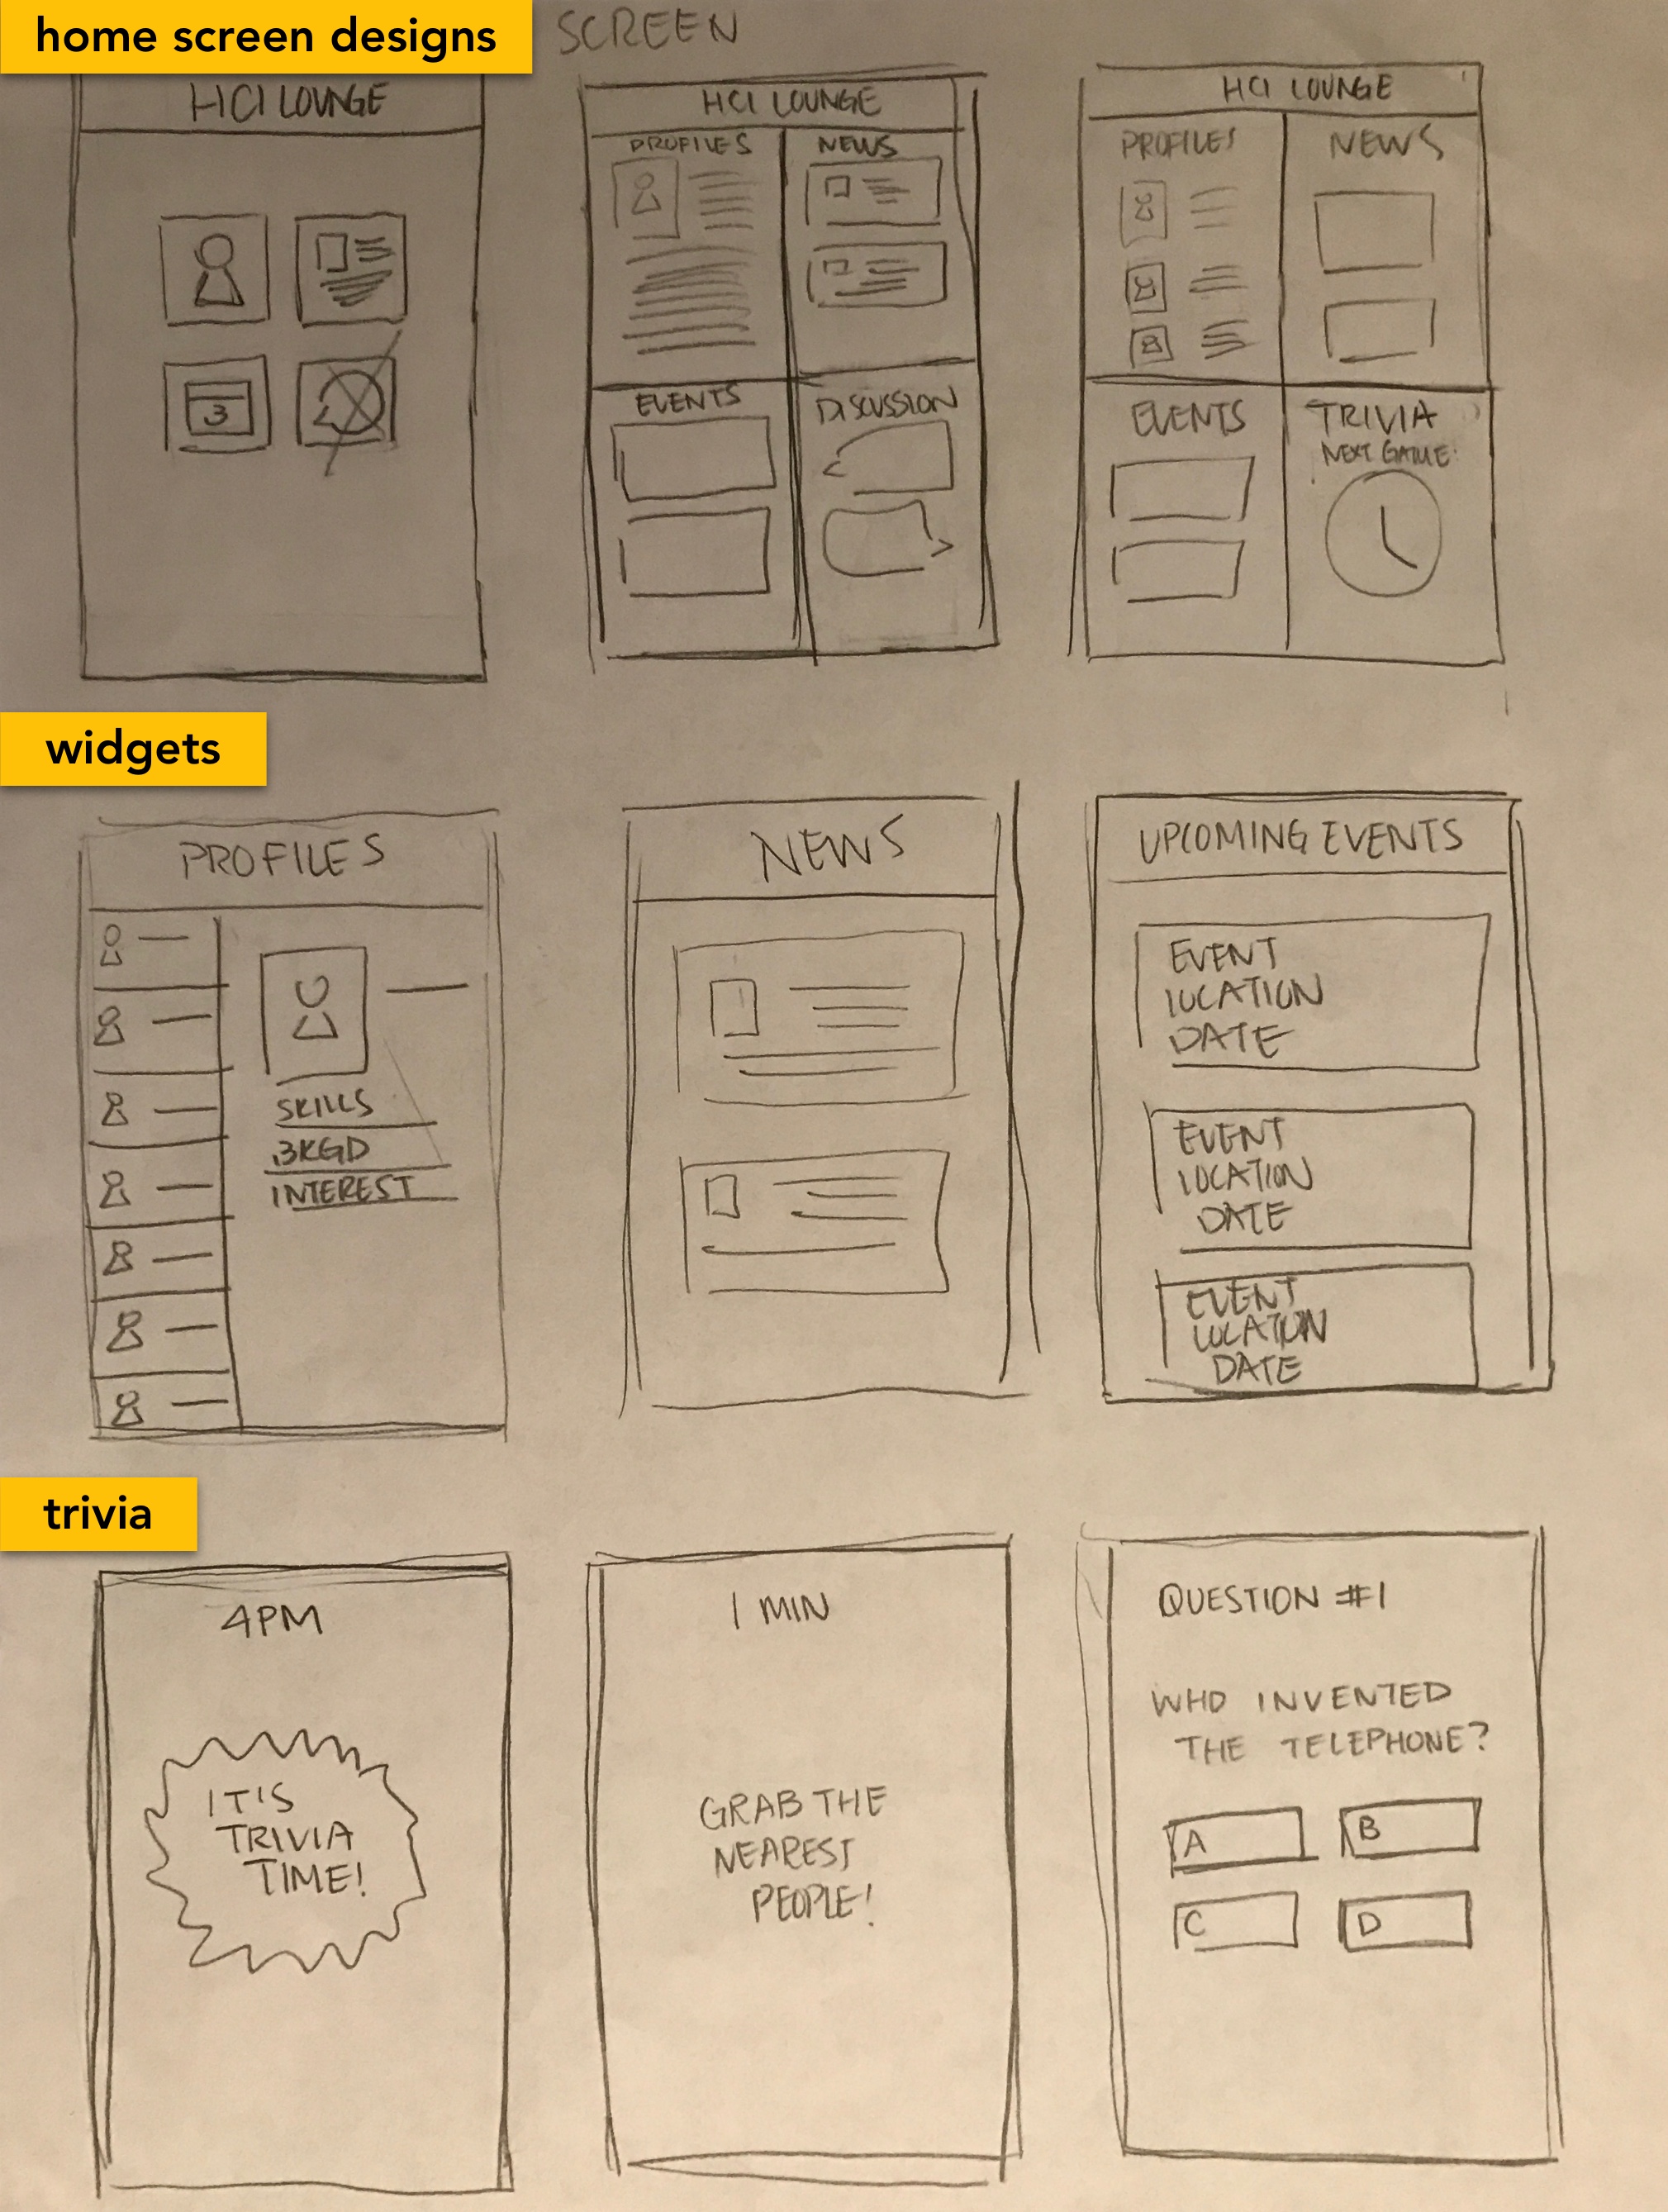 home screen designs
SCREEN
HCI LOUNGE
3
HCI LOUNGE
PROFILES
NEWS
EVENTS
DISCUSSION
HCI LOUNGE
PROFILES
NEWS
EVENTS
TRIVIA
NEXT GAME:
widgets
PROFILES
SKILLS
BKGD
INTEREST
NEWS
UPCOMING EVENTS
EVENT
LOCATION
DATE
EVENT
LOCATION
DATE
EVENT
LOCATION
DATE
trivia
4PM
IT'S
TRIVIA
TIME!
1 MIN
GRAB THE
NEAREST
PEOPLE!
QUESTION #1
WHO INVENTED
THE TELEPHONE?
A
B
C
D